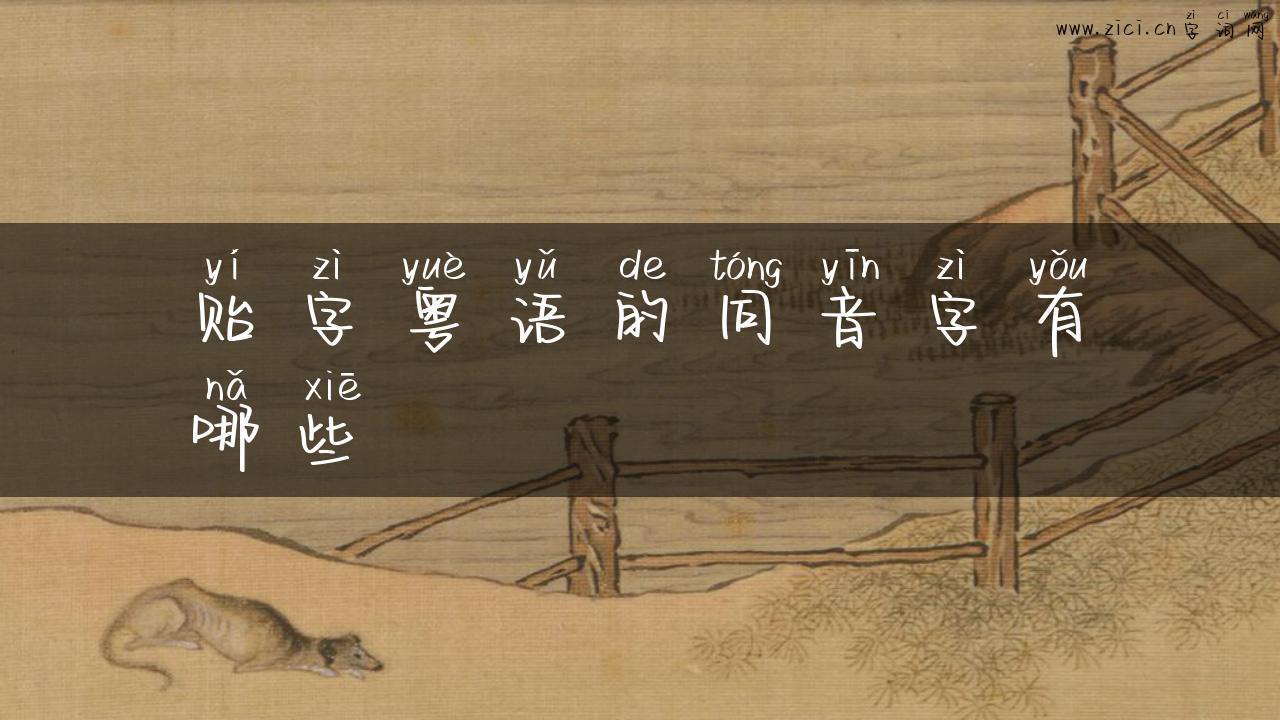 zì cí wǎng
www.zici.cn 字词网
yí zì yuè yǔ de tóng yīn zì yǒu
贻字粤语的同音字有
nǎ xiē
哪些